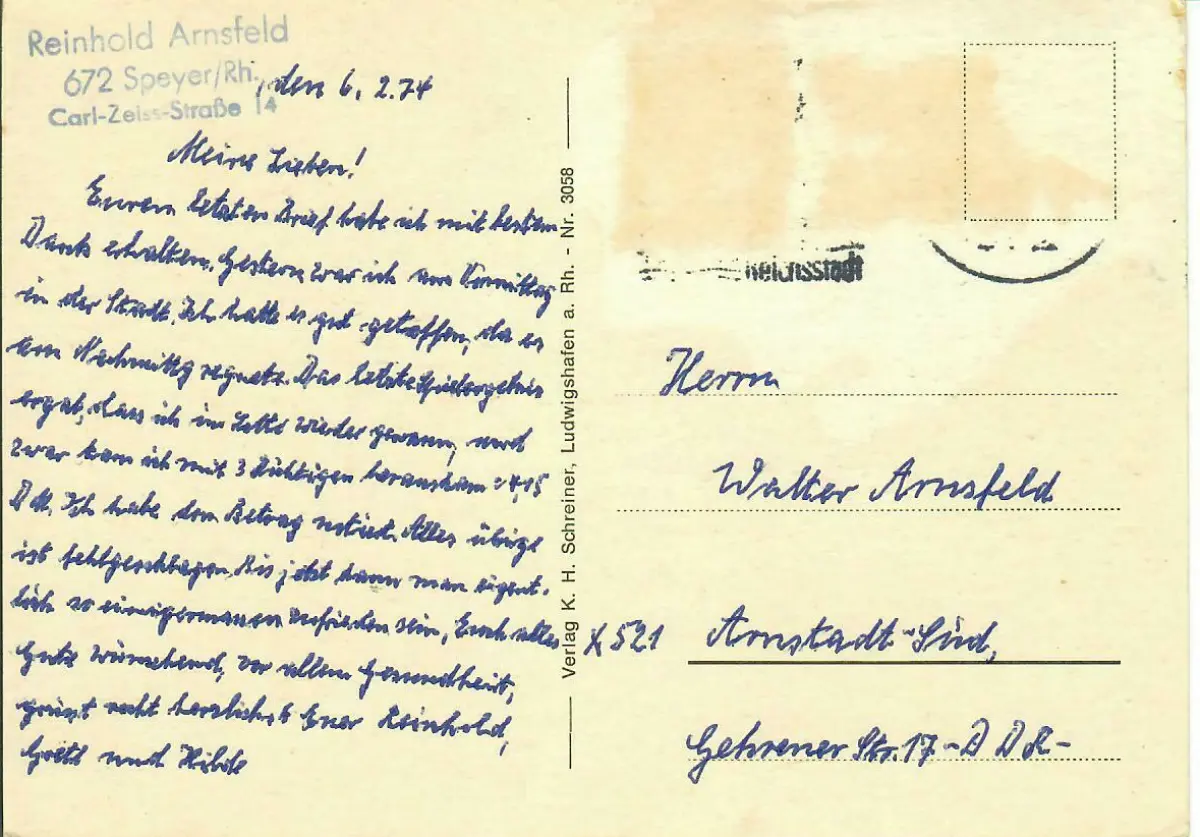 Reinhold Arnsfeld
672 Speyer/Rh., den 6. 2. 74
Carl-Zeiss-Straße 14
Meine Lieben!
Euren letzten Brief habe ich mit bestem
Dank erhalten. Gestern war ich am Vormittag
in der Stadt. Ich hatte es gut getroffen, da es
am Nachmittg regnete. Das letzte Spielergebnis
ergab, dass ich im Lotto wieder gewann, und
zwar kam ich mit 3 Richtigen heraus 4,15
DM. Ich habe den Betrag notiert. Alles übrige
ist fehlgeschlagen. Bis jetzt kann man eigent-
lich so einigermassen zufrieden sein. Euch alles
Gute wünschend, vor allem Gesundheit,
grüsst recht herzlichst Euer Reinhold,
Gretl und Hilde
Verlag K. H. Schreiner, Ludwigshafen a. Rh. - Nr. 3058
Reichsstadt
Herrn
Walter Arnsfeld
X 521 Arnstadt-Süd,
Gehrener Str. 17 - DDR -